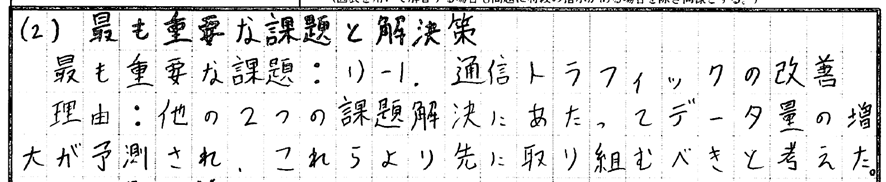 (2) 最も重要な課題と解決策
最も重要な課題：1)-1. 通信トラフィックの改善
理由：他の2つの課題解決にあたってデータ量の増
大が予測され、これらより先に取り組むべきと考えた。